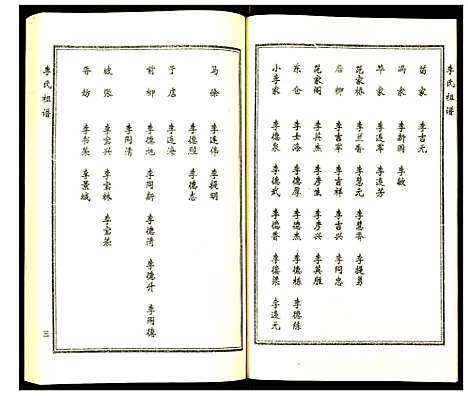 李氏祖谱
苗家 李吉元
冯家 李新国 李敏
毕家 李连军 李连芳
范家桥 李兰香 李慧元 李慧齐 李提勇
后柳 李吉军 李吉祥 李吉兴 李同忠
范家阁 李其杰 李彦生 李彦兴 李其胜
东仓 李士洛 李德厚 李德杰 李德栋 李德陈
小李家 李德泉 李德武 李德香 李德梁 李连元
马徐 李连伟 李提明
于店 李连海 李德恩 李德志
前柳 李德旭 李同新 李德清 李德升 李同德
李同清
坡张 李宝兴 李宝林 李宝荣
香坊 李书荣 李景城
李氏祖谱
三